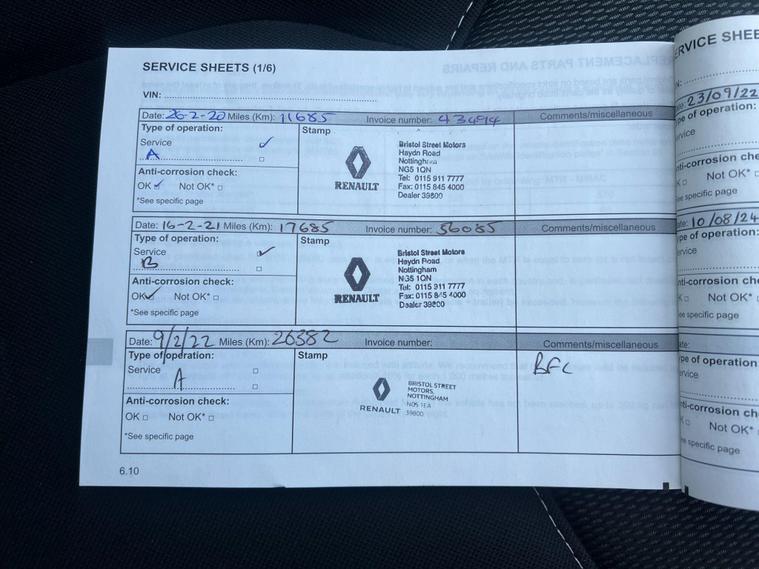 SERVICE SHEETS (1/6)
VIN:
Date: 26-2-20 Miles (Km): 11685 Invoice number: 43494 Comments/miscellaneous
Type of operation:
Stamp
Service
A
Anti-corrosion check:
OK Not OK*
*See specific page
RENAULT
Bristol Street Motors
Haydn Road
Nottingham
NG5 1QN
Tel: 0115 911 7777
Fax: 0115 845 4000
Dealer 39800
Date: 16-2-21 Miles (Km): 17685 Invoice number: 56085 Comments/miscellaneous
Type of operation:
Stamp
Service
B
Anti-corrosion check:
OK Not OK*
*See specific page
RENAULT
Bristol Street Motors
Haydn Road
Nottingham
NG5 1QN
Tel: 0115 911 7777
Fax: 0115 845 4000
Dealer 39800
Date: 9/2/22 Miles (Km): 26382 Invoice number: Comments/miscellaneous
Type of operation:
Stamp
Service
A
Anti-corrosion check:
OK Not OK*
*See specific page
RENAULT
BRISTOL STREET
MOTORS,
NOTTINGHAM
39800
6.10
ERVICE SHEE
N:
23/09/22
pe of operation:
rvice
nti-corrosion che
Not OK*
ee specific page
10/08/24
pe of operation:
ervice
nti-corrosion ch
Not OK*
ee specific page
ate:
pe of operation
ervice
nti-corrosion ch
Not OK*
ee specific page